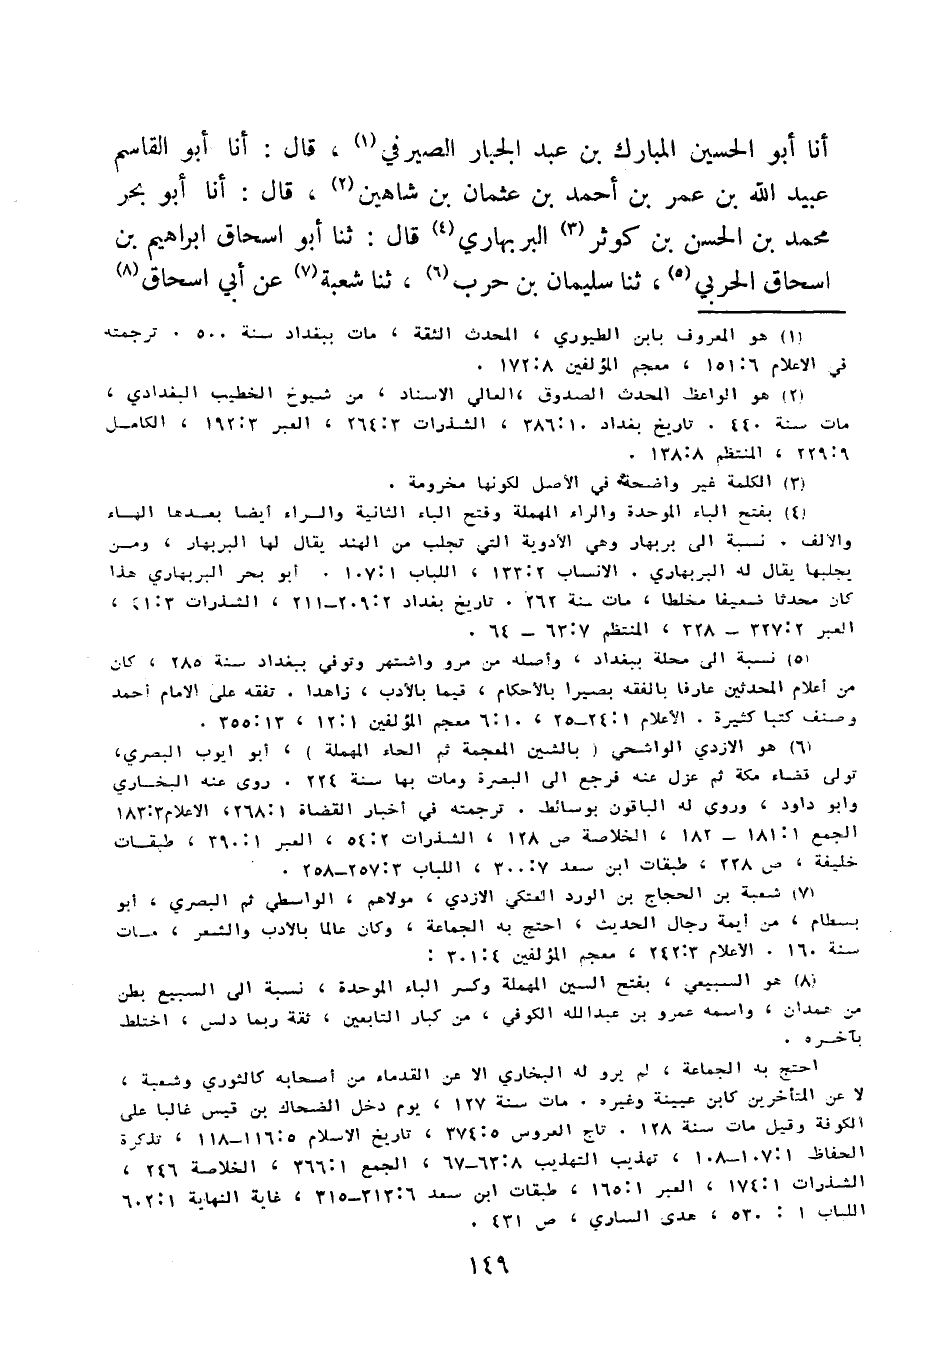 أنا أبو الحسين المبارك بن عبد الجبار الصيرفي(١) ، قال : أنا أبو القاسم
عبيد الله بن عمر بن أحمد بن عثمان بن شاهين(٢) ، قال : أنا أبو بحر
محمد بن الحسن بن كوثر(٣) البربهاري(٤) قال : ثنا أبو اسحاق ابراهيم بن
اسحاق الحربي(٥) ، ثنا سليمان بن حرب(٦) ، ثنا شعبة(٧) عن أبي اسحاق(٨)
(١) هو المعروف بابن الطيوري ، المحدث الثقة ، مات ببغداد سنة ٥٠٠ . ترجمته
في الاعلام ١٥١:٦ ، معجم المؤلفين ١٧٢:٨ .
(٢) هو الواعظ المحدث الصدوق ،العالي الاسناد ، من شيوخ الخطيب البغدادي ،
مات سنة ٤٤٠ . تاريخ بغداد ٣٨٦:١٠ ، الشذرات ٢٦٤:٣ ، العبر ١٩٢:٣ ، الكامل
٢٢٩:٩ ، المنتظم ١٣٨:٨ .
(٣) الكلمة غير واضحة في الأصل لكونها مخرومة .
(٤) بفتح الباء الموحدة والراء المهملة وفتح الباء الثانية والراء أيضا بعدها الهاء
والالف . نسبة الى بربهار وهي الأدوية التي تجلب من الهند يقال لها البربهار ، ومن
يجلبها يقال له البربهاري . الانساب ١٣٣:٢ ، اللباب ١٠٧:١ . أبو بحر البربهاري هذا
كان محدثا ضعيفا مخلطا ، مات سنة ٣٦٢ . تاريخ بغداد ٢٠٩:٢–٢١١ ، الشذرات ٤١:٣ ،
العبر ٣٢٧:٢ – ٣٢٨ ، المنتظم ٦٣:٧ – ٦٤ .
(٥) نسبة الى محلة ببغداد ، وأصله من مرو واشتهر وتوفي ببغداد سنة ٢٨٥ ، كان
من أعلام المحدثين عارفا بالفقه بصيرا بالأحكام ، قيما بالأدب ، زاهدا . تفقه على الامام أحمد
وصنف كتبا كثيرة . الأعلام ٢٤:١–٢٥ ، ٦:١٠ معجم المؤلفين ١٢:١ ، ٣٥٥:١٣ .
(٦) هو الازدي الواشحي ( بالشين المعجمة ثم الحاء المهملة ) ، أبو ايوب البصري،
تولى قضاء مكة ثم عزل عنه فرجع الى البصرة ومات بها سنة ٢٢٤ . روى عنه البخاري
وابو داود ، وروي له الباقون بوسائط . ترجمته في أخبار القضاة ٢٦٨:١، الاعلام١٨٣:٣
الجمع ١٨١:١ – ١٨٢ ، الخلاصة ص ١٢٨ ، الشذرات ٥٤:٢ ، العبر ٣٩٠:١ ، طبقات
خليفة ، ص ٢٢٨ ، طبقات ابن سعد ٣٠٠:٧ ، اللباب ٢٥٧:٣–٢٥٨ .
(٧) شعبة بن الحجاج بن الورد العتكي الازدي ، مولاهم ، الواسطي ثم البصري ، أبو
بسطام ، من أيمة رجال الحديث ، احتج به الجماعة ، وكان عالما بالادب والشعر ، مات
سنة ١٦٠ . الاعلام ٢٤٢:٣ ، معجم المؤلفين ٣٠١:٤ :
(٨) هو السبيعي ، بفتح السين المهملة وكسر الباء الموحدة ، نسبة الى السبيع بطن
من همدان ، واسمه عمرو بن عبدالله الكوفي ، من كبار التابعين ، ثقة ربما دلس ، اختلط
بآخره .
احتج به الجماعة ، لم يرو له البخاري الا عن القدماء من أصحابه كالثوري وشعبة ،
لا عن المتأخرين كابن عيينة وغيره . مات سنة ١٢٧ ، يوم دخل الضحاك بن قيس غالبا على
الكوفة وقيل مات سنة ١٢٨ . تاج العروس ٣٧٤:٥ ، تاريخ الاسلام ١١٦:٥–١١٨ ، تذكرة
الحفاظ ١٠٧:١–١٠٨ ، تهذيب التهذيب ٦٣:٨–٦٧ ، الجمع ٣٦٦:١ ، الخلاصة ٢٤٦ ،
الشذرات ١٧٤:١ ، العبر ١٦٥:١ ، طبقات ابن سعد ٣١٣:٦–٣١٥ ، غاية النهاية ٦٠٢:١
اللباب ١ : ٥٣٠ ، هدى الساري ، ص ٤٣١ .
١٤٩